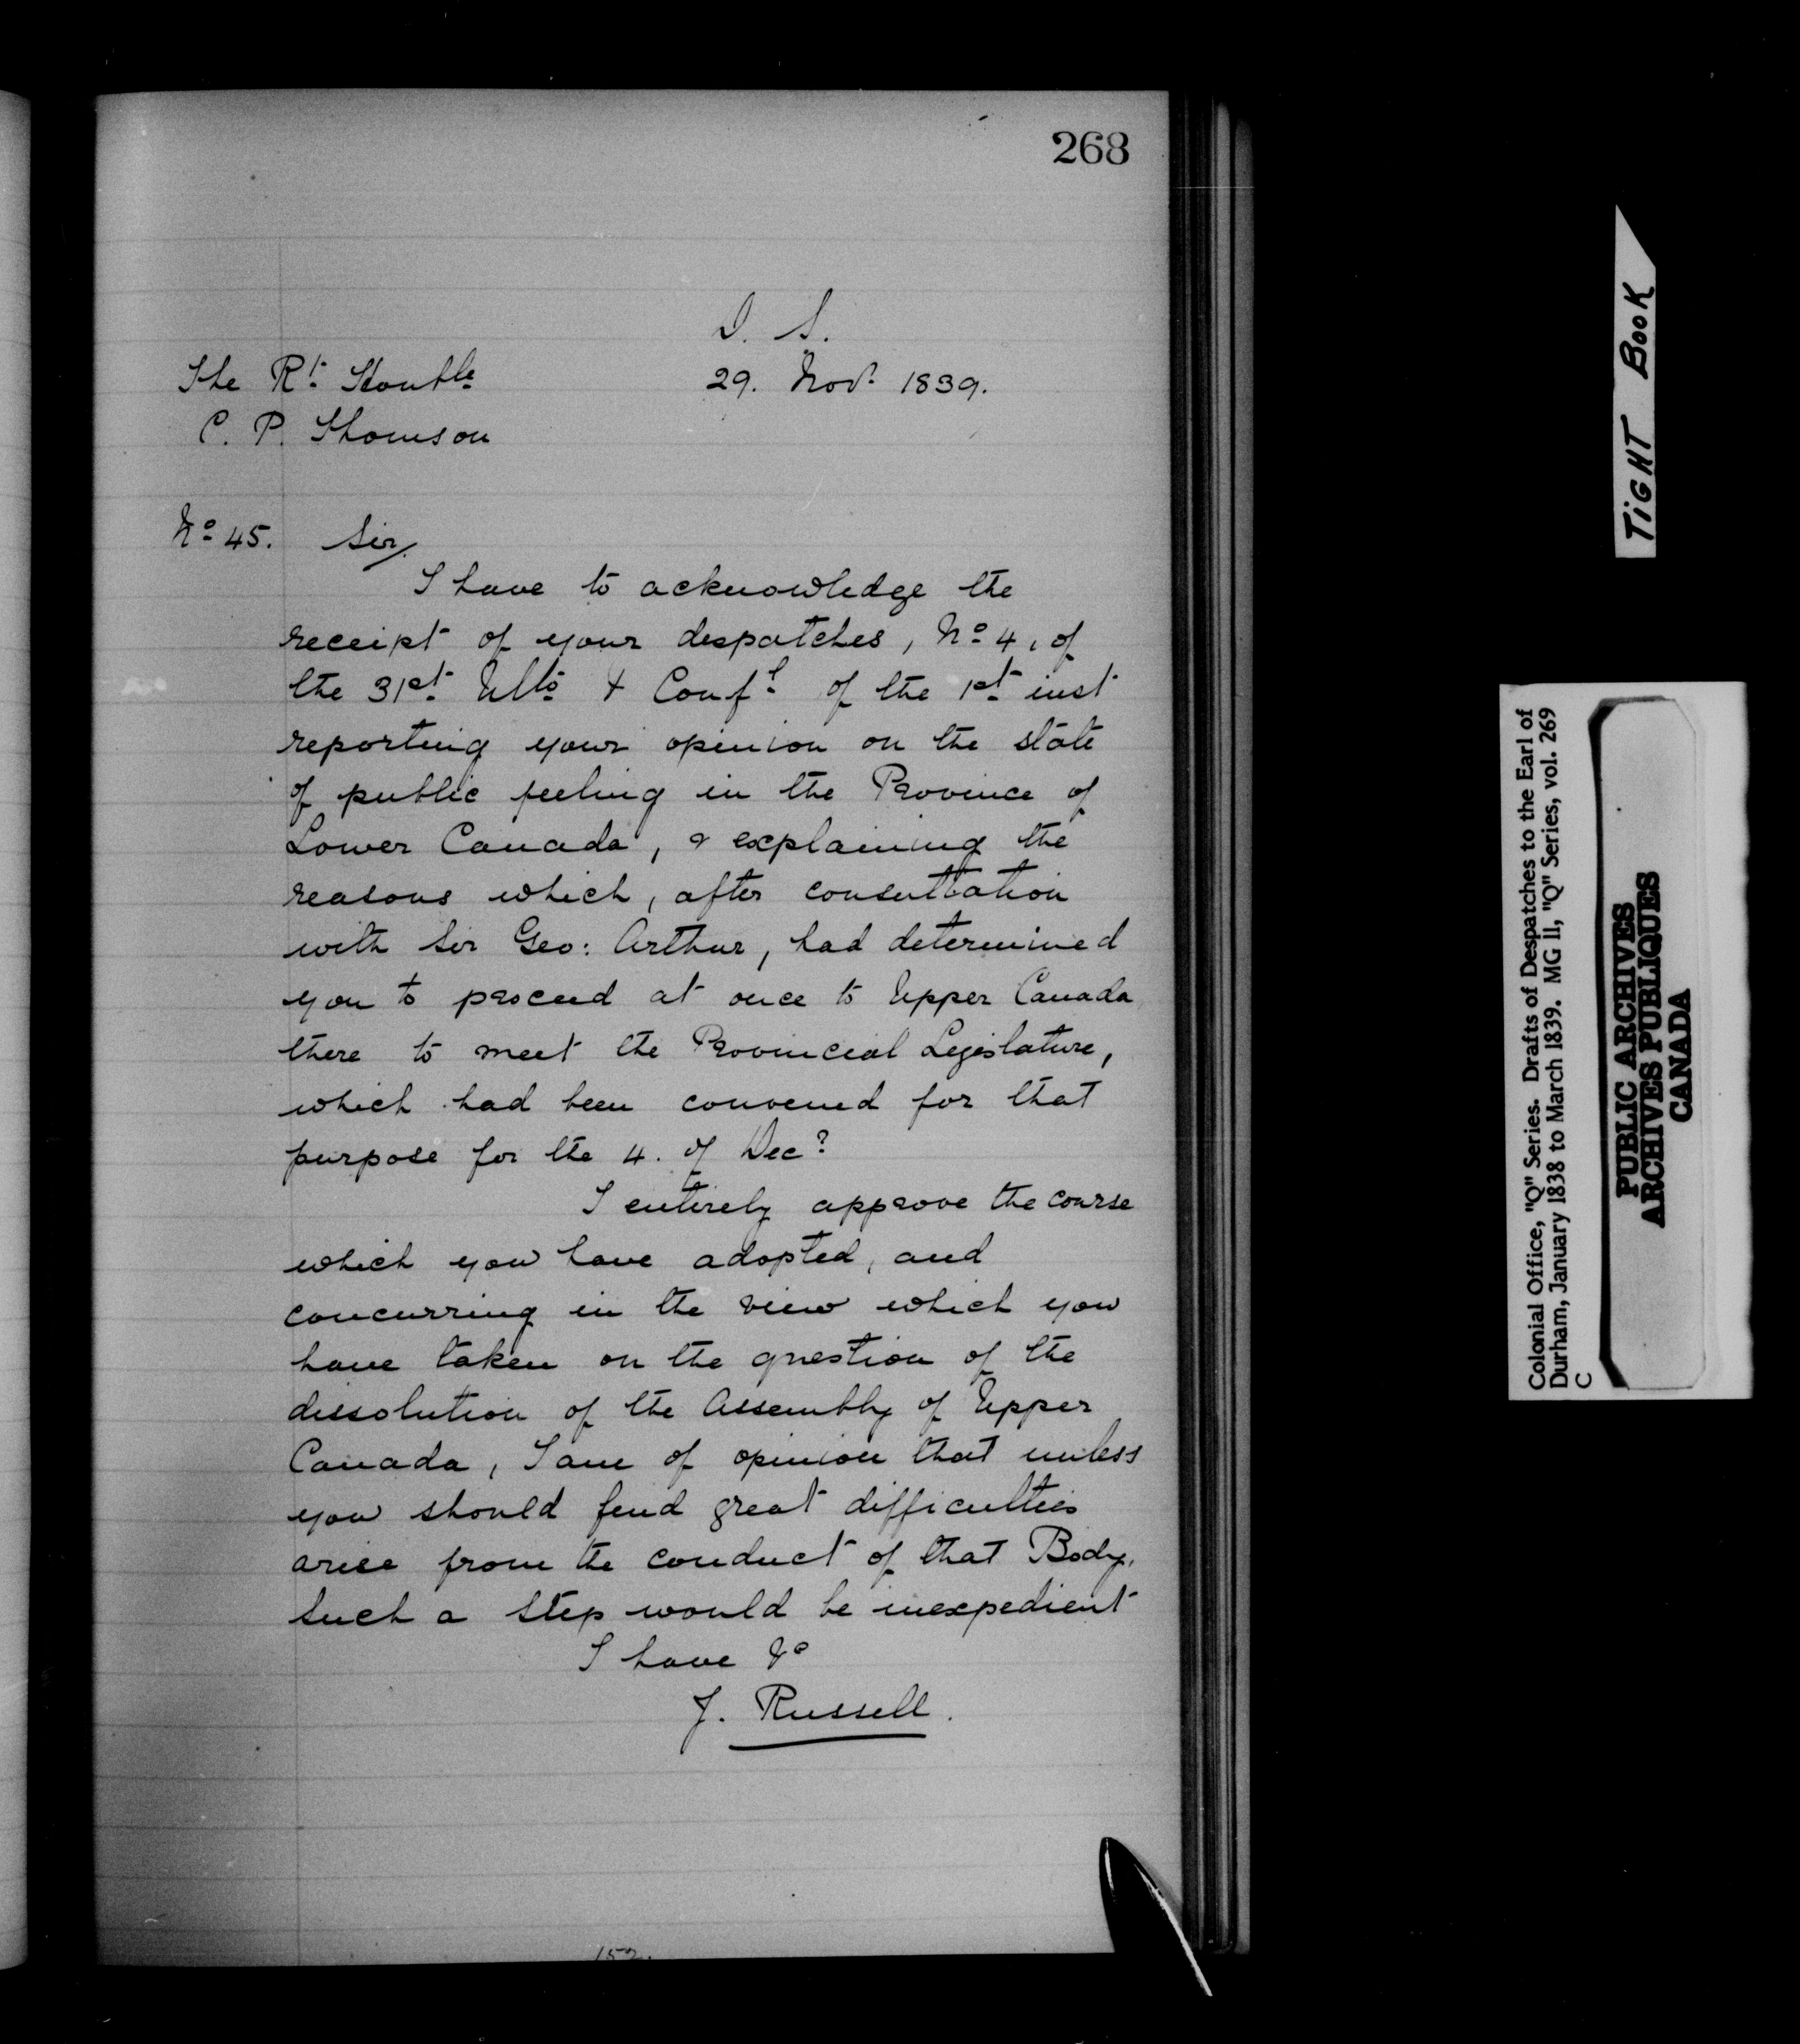 268
D. S.
The Rt. Honble
29. Novr. 1839.
C. P. Thomson
No. 45. Sir,
I have to acknowledge the
receipt of your despatches, No. 4, of
the 31st Ulto. & Confl. of the 1st inst
reporting your opinion on the state
of public feeling in the Province of
Lower Canada, & explaining the
reasons which, after consultation
with Sir Geo: Arthur, had determined
you to proceed at once to Upper Canada
there to meet the Provincial Legislature,
which had been convened for that
purpose for the 4. of Decr.
I entirely approve the course
which you have adopted, and
concurring in the view which you
have taken on the question of the
dissolution of the Assembly of Upper
Canada, I am of opinion that unless
you should find great difficulties
arise from the conduct of that Body,
such a step would be inexpedient
I have &c
J. Russell.
TIGHT BOOK
Colonial Office, "Q" Series. Drafts of Despatches to the Earl of
Durham, January 1838 to March 1839. MG 11, "Q" Series, vol. 269
C
PUBLIC ARCHIVES
ARCHIVES PUBLIQUES
CANADA